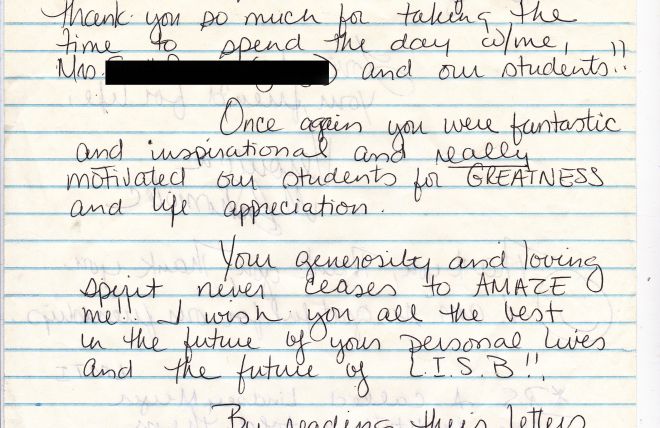 Thank you so much for taking the
time to spend the day w/me,
Mrs. and our students!!
Once again you were fantastic
and inspirational and really
motivated our students for GREATNESS
and life appreciation.
Your generosity and loving
spirit never ceases to AMAZE
me... I wish you all the best
in the future of your personal lives
and the future of L.I.S.B!!
By reading their letters